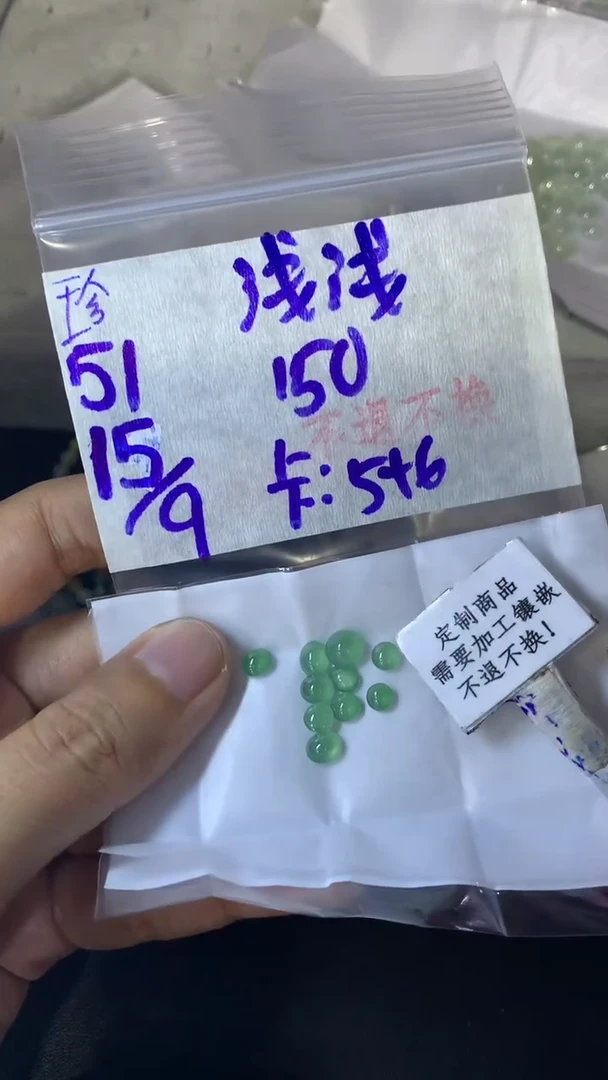 珍
浅浅
51
150
不退不换
15/9
卡:5+6
定制商品
需要加工镶嵌
不退不换!